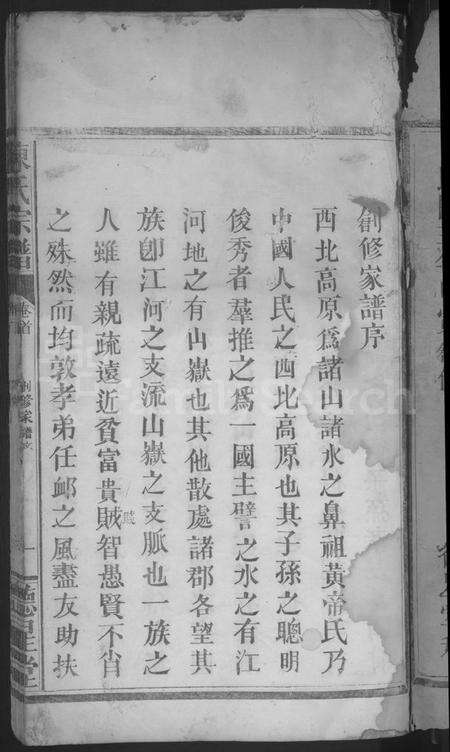 創修家譜序
西北高原爲諸山諸水之鼻祖黃帝氏乃
中國人民之西北高原也其子孫之聰明
俊秀者羣推之爲一國主譬之水之有江
河地之有山嶽也其他散處諸郡各望其
族卽江河之支流山嶽之支脈也一族之
人雖有親疏遠近貧富貴賊智愚賢不肖
之殊然而均敦孝弟任邺之風盡友助扶
氏宗譜
卷首
創修家譜序
一
堂
FamilySearch